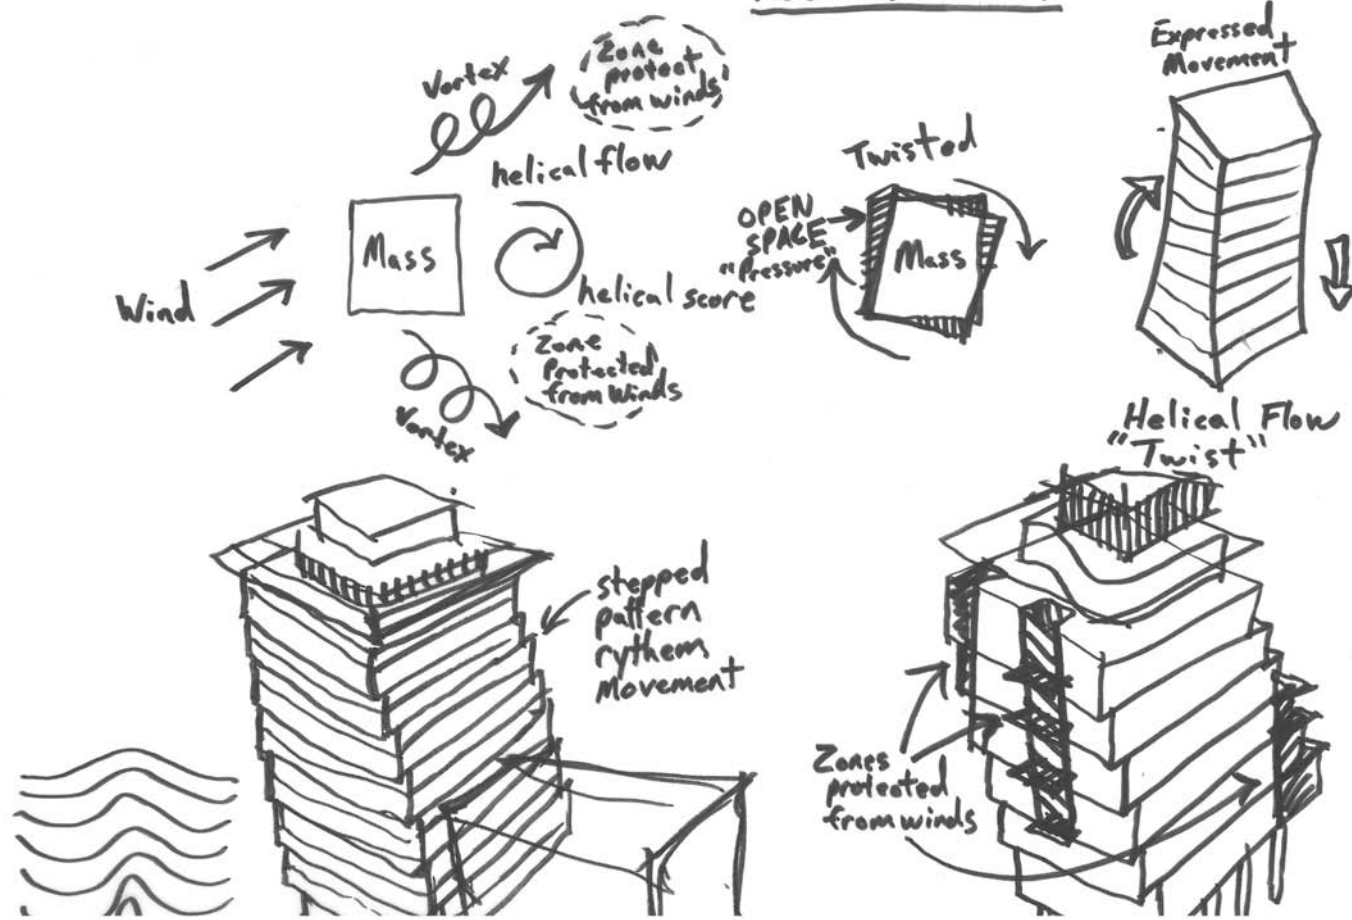 Vortex
Zone
protect
from winds
helical flow
Wind
Mass
helical score
Zone
Protected
from Winds
Vortex
Twisted
OPEN
SPACE
"Pressure"
Mass
Expressed
Movement
Helical Flow
"Twist"
stepped
pattern
rythem
Movement
Zones
protected
from winds